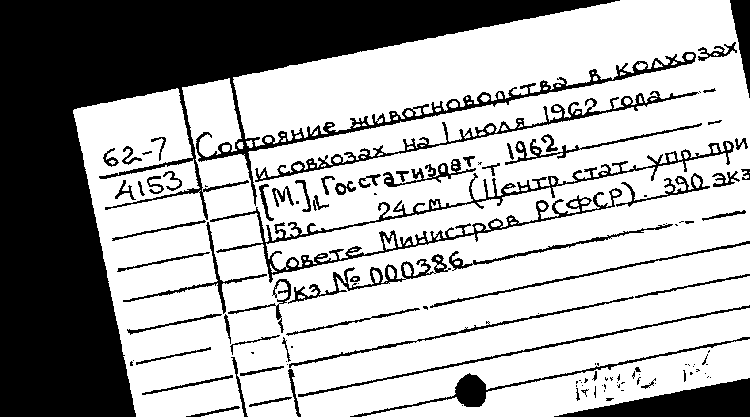 62-7 Состояние животноводства в колхозах
4153 и совхозах на 1 июля 1962 года.
[М.], Госстатиздат, 1962.
153 с. 24 см. (Центр. стат. упр. при
Совете Министров РСФСР). 390 экз
Экз. № 000386.